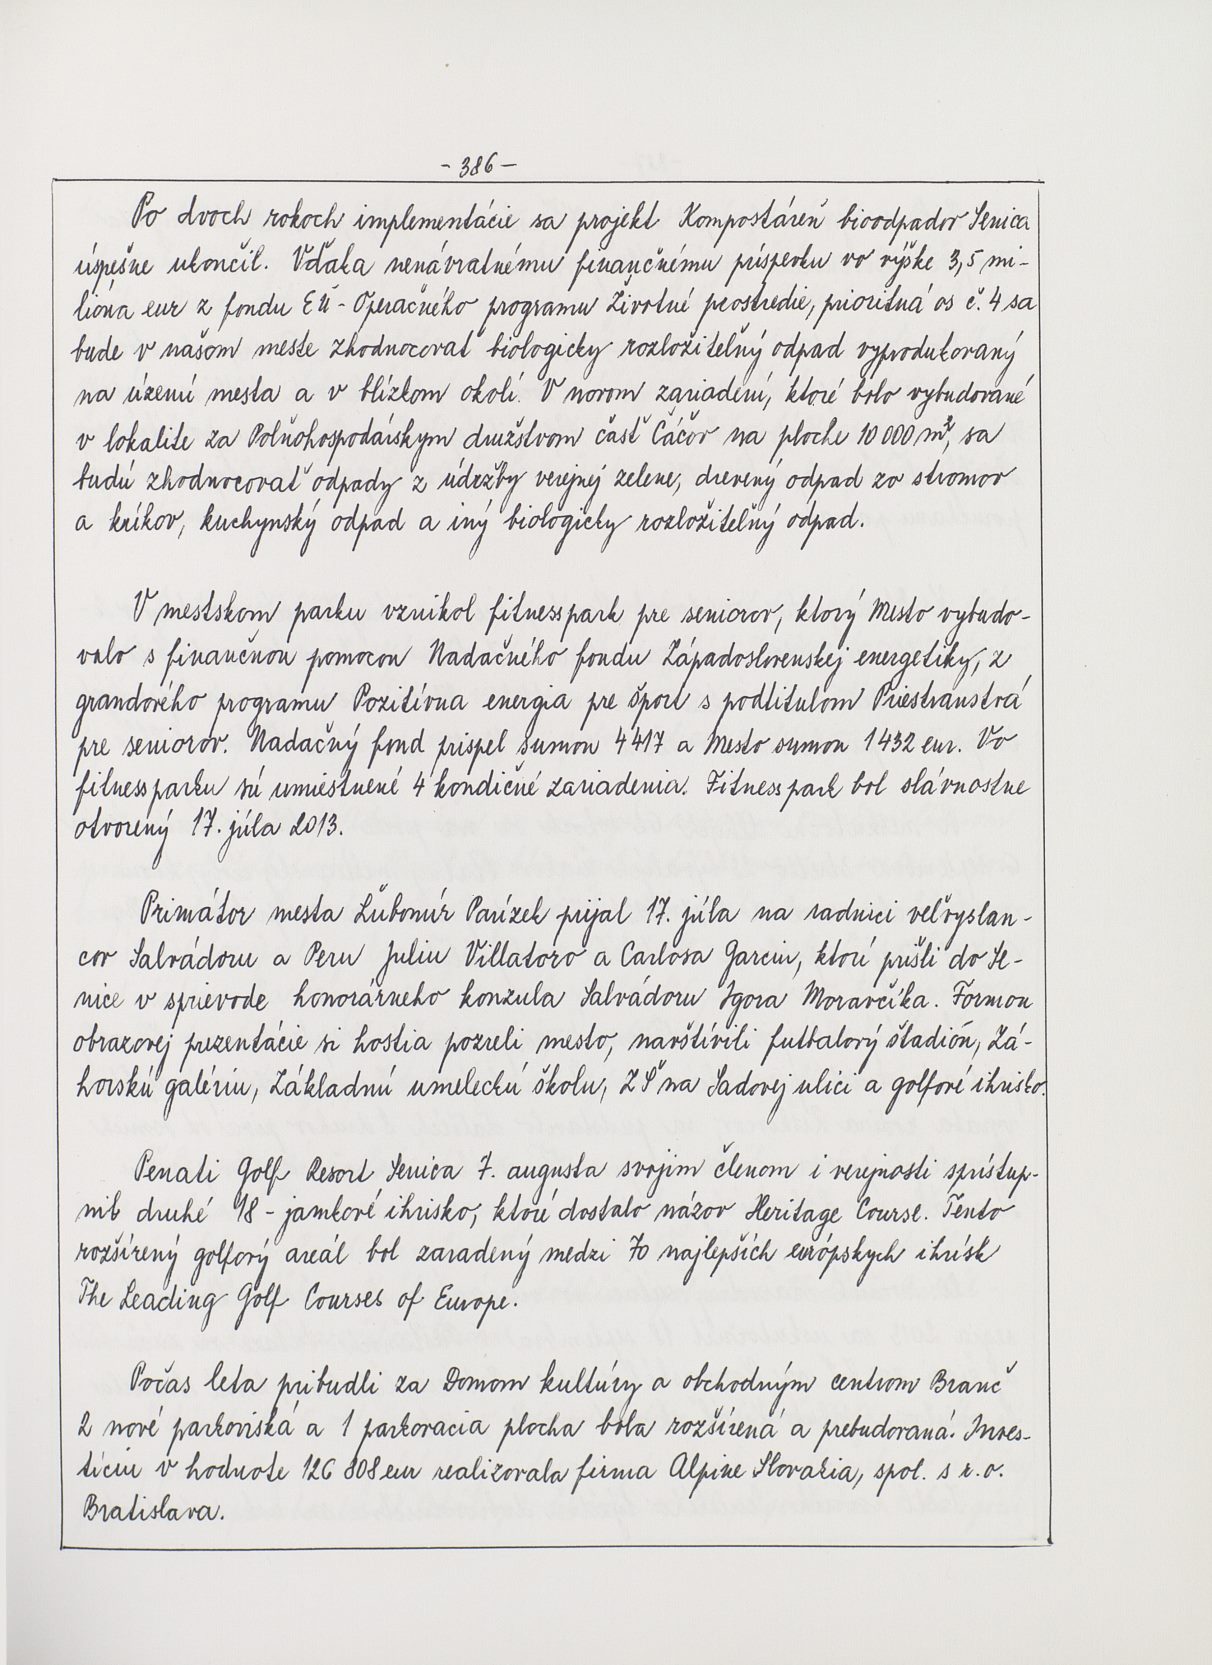 - 386 -
Po dvoch rokoch implementácie sa projekt Kompostáreň bioodpadov Senica
úspešne ukončil. Vďaka nenávratnému finančnému príspevku vo výške 3,5 mi-
lióna eur z fondu EÚ - Operačného programu Životné prostredie, prioritná os č. 4 sa
bude v našom meste zhodnocovať biologicky rozložiteľný odpad vyprodukovaný
na území mesta a v blízkom okolí. V novom zariadení, ktoré bolo vybudované
v lokalite za Poľnohospodárskym družstvom časť Čáčov na ploche 10 000 m², sa
budú zhodnocovať odpady z údržby verejnej zelene, drevený odpad zo stromov
a kríkov, kuchynský odpad a iný biologicky rozložiteľný odpad.
V mestskom parku vznikol fitnesspark pre seniorov, ktorý Mesto vybudo-
valo s finančnou pomocou Nadačného fondu Západoslovenskej energetiky, z
grandového programu Pozitívna energia pre šport s podtitulom Priestranstvá
pre seniorov. Nadačný fond prispel sumou 4 417 a Mesto sumou 1 432 eur. Vo
fitnessparku sú umiestnené 4 kondičné zariadenia. Fitnesspark bol slávnostne
otvorený 17. júla 2013.
Primátor mesta Ľubomír Parízek prijal 17. júla na radnici veľvyslan-
cov Salvádoru a Peru Juliu Villatoro a Carlosa Garciu, ktorí prišli do Se-
nice v sprievode honorárneho konzula Salvádoru Igora Moravčíka. Formou
obrazovej prezentácie si hostia pozreli mesto, navštívili futbalový štadión, Zá-
horskú galériu, Základnú umeleckú školu, ZŠ na Sadovej ulici a golfové ihrisko.
Penati Golf Resort Senica 7. augusta svojim členom i verejnosti sprístup-
nil druhé 18 - jamkové ihrisko, ktoré dostalo názov Heritage Course. Tento
rozšírený golfový areál bol zaradený medzi 70 najlepších európskych ihrísk
The Leading Golf Courses of Europe.
Počas leta pribudli za Domom kultúry a obchodným centrom Branč
2 nové parkoviská a 1 parkovacia plocha bola rozšírená a prebudovaná. Inves-
tíciu v hodnote 126 808 eur realizovala firma Alpine Slovakia, spol. s r.o.
Bratislava.